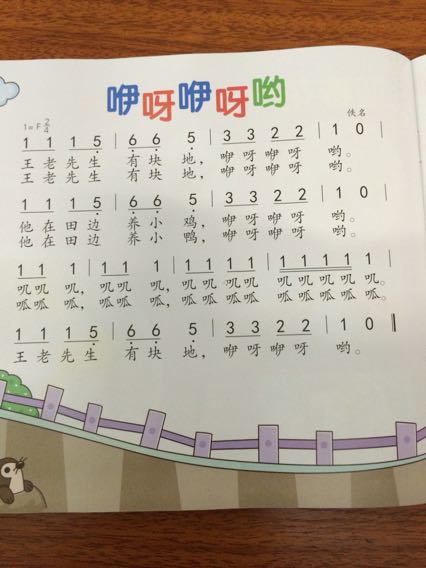 咿呀咿呀哟
1=F 2/4
佚名
1 1 1 5 | 6 6 5 | 3 3 2 2 | 1 0 |
王老先生 有块地， 咿呀咿呀 哟。
王老先生 有块地， 咿呀咿呀 哟。
1 1 1 5 | 6 6 5 | 3 3 2 2 | 1 0 |
他在田边 养小鸡， 咿呀咿呀 哟。
他在田边 养小鸭， 咿呀咿呀 哟。
1 1 1 | 1 1 1 | 1 1 1 1 | 1 1 1 1 1 |
叽叽 叽，叽叽 叽，叽叽叽叽 叽叽叽叽叽。
呱呱 呱，呱呱 呱，呱呱呱呱 呱呱呱呱呱。
1 1 1 5 | 6 6 5 | 3 3 2 2 | 1 0 ‖
王老先生 有块地， 咿呀咿呀 哟。